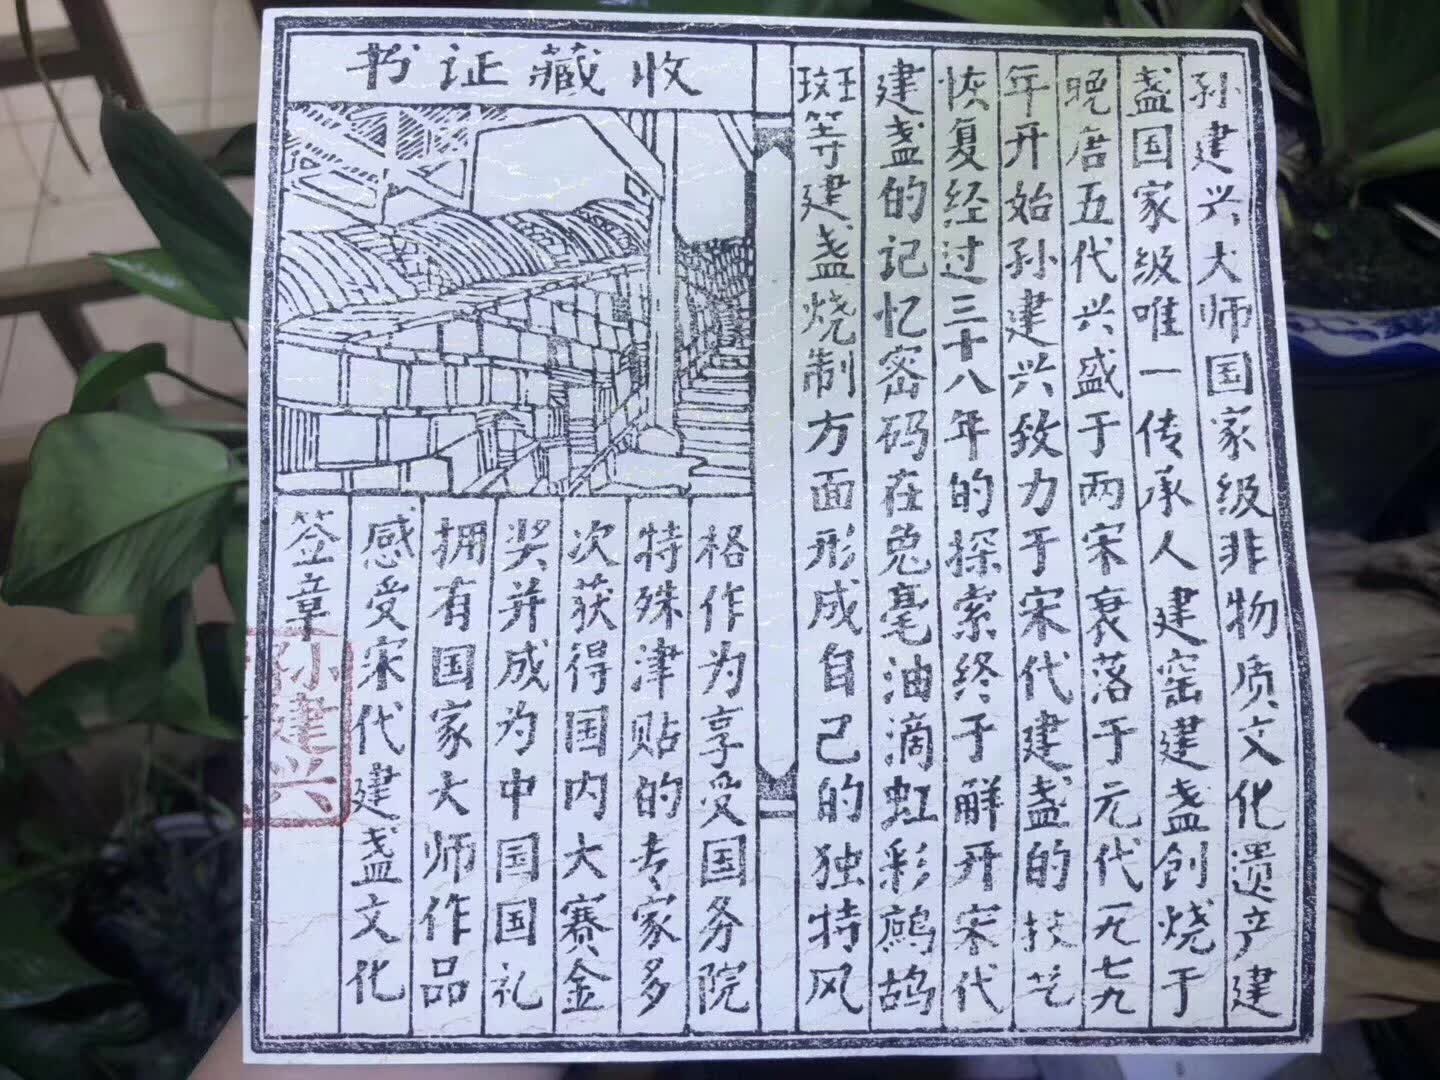 收藏证书
孙建兴大师国家级非物质文化遗产建
盏国家级唯一传承人建窑建盏创烧于
晚唐五代兴盛于两宋衰落于元代一九七九
年开始孙建兴致力于宋代建盏的技艺
恢复经过三十八年的探索终于解开宋代
建盏的记忆密码在兔毫油滴虹彩鹧鸪
斑等建盏烧制方面形成自己的独特风
格作为享受国务院
特殊津贴的专家多
次获得国内大赛金
奖并成为中国国礼
拥有国家大师作品
感受宋代建盏文化
签章
孙建兴